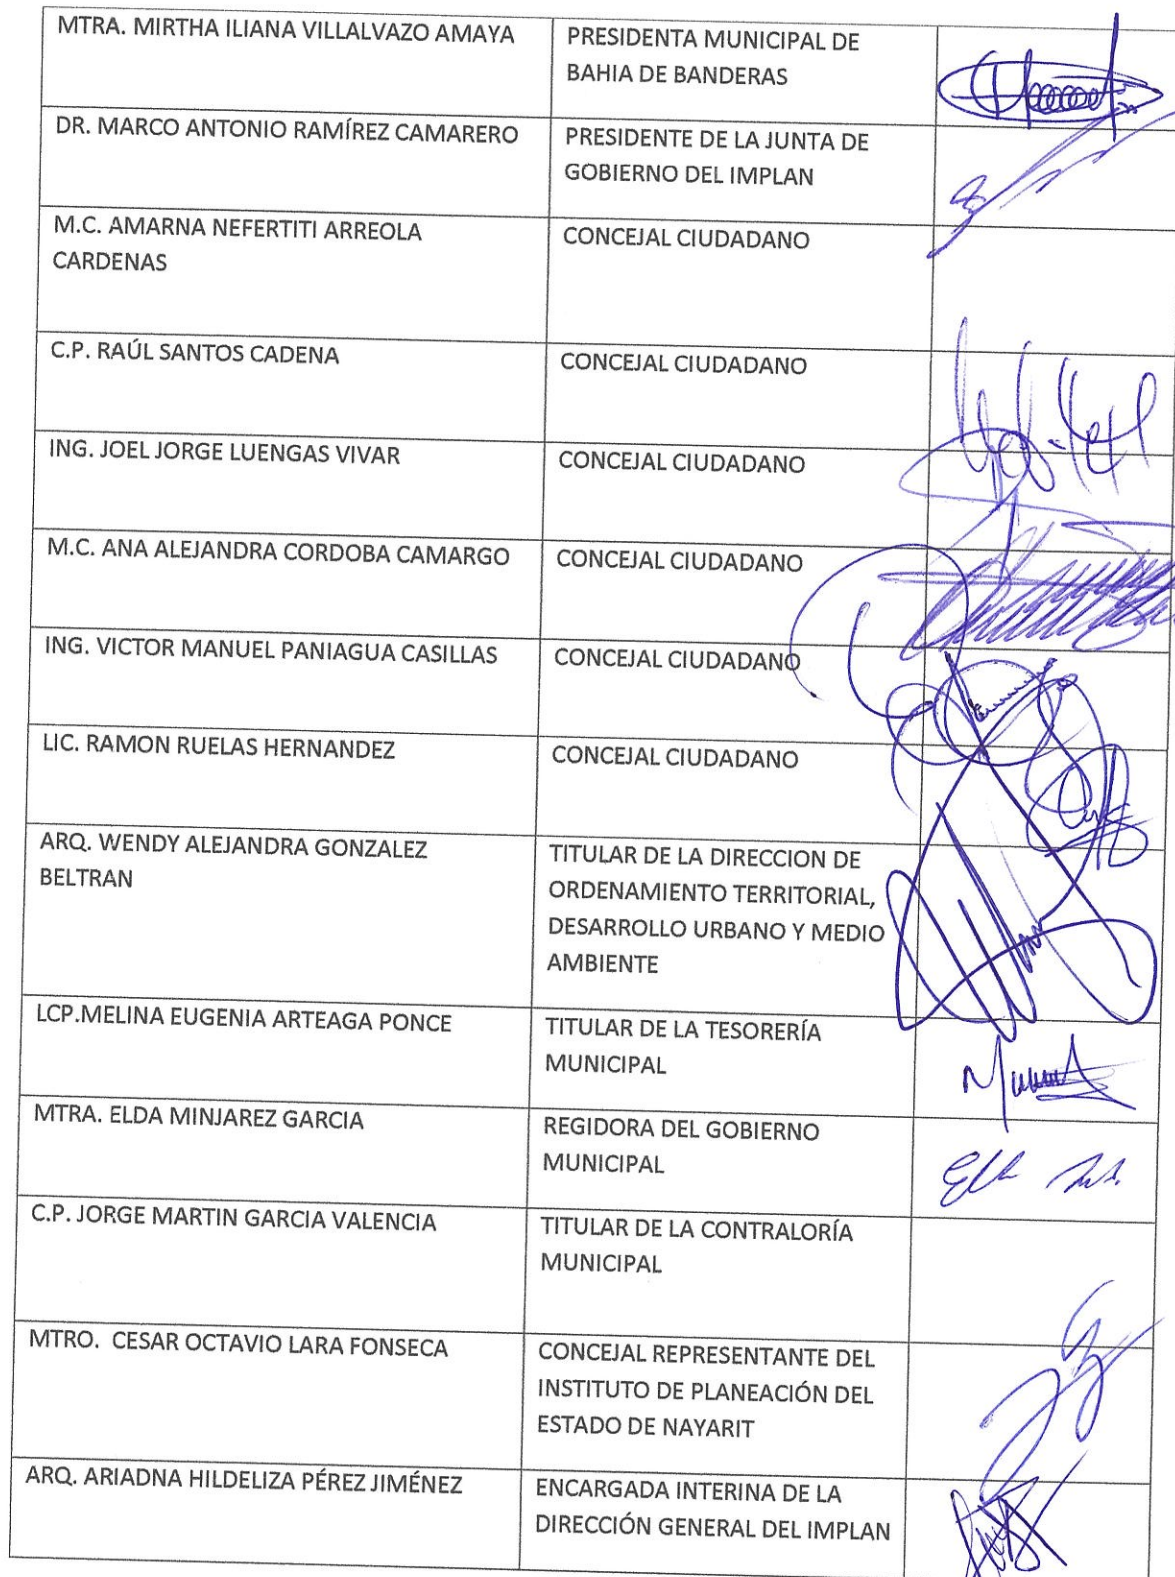 MTRA. MIRTHA ILIANA VILLALVAZO AMAYA
PRESIDENTA MUNICIPAL DE
BAHIA DE BANDERAS
DR. MARCO ANTONIO RAMÍREZ CAMARERO
PRESIDENTE DE LA JUNTA DE
GOBIERNO DEL IMPLAN
M.C. AMARNA NEFERTITI ARREOLA
CARDENAS
CONCEJAL CIUDADANO
C.P. RAÚL SANTOS CADENA
CONCEJAL CIUDADANO
ING. JOEL JORGE LUENGAS VIVAR
CONCEJAL CIUDADANO
M.C. ANA ALEJANDRA CORDOBA CAMARGO
CONCEJAL CIUDADANO
ING. VICTOR MANUEL PANIAGUA CASILLAS
CONCEJAL CIUDADANO
LIC. RAMON RUELAS HERNANDEZ
CONCEJAL CIUDADANO
ARQ. WENDY ALEJANDRA GONZALEZ
BELTRAN
TITULAR DE LA DIRECCION DE
ORDENAMIENTO TERRITORIAL,
DESARROLLO URBANO Y MEDIO
AMBIENTE
LCP.MELINA EUGENIA ARTEAGA PONCE
TITULAR DE LA TESORERÍA
MUNICIPAL
MTRA. ELDA MINJAREZ GARCIA
REGIDORA DEL GOBIERNO
MUNICIPAL
C.P. JORGE MARTIN GARCIA VALENCIA
TITULAR DE LA CONTRALORÍA
MUNICIPAL
MTRO. CESAR OCTAVIO LARA FONSECA
CONCEJAL REPRESENTANTE DEL
INSTITUTO DE PLANEACIÓN DEL
ESTADO DE NAYARIT
ARQ. ARIADNA HILDELIZA PÉREZ JIMÉNEZ
ENCARGADA INTERINA DE LA
DIRECCIÓN GENERAL DEL IMPLAN